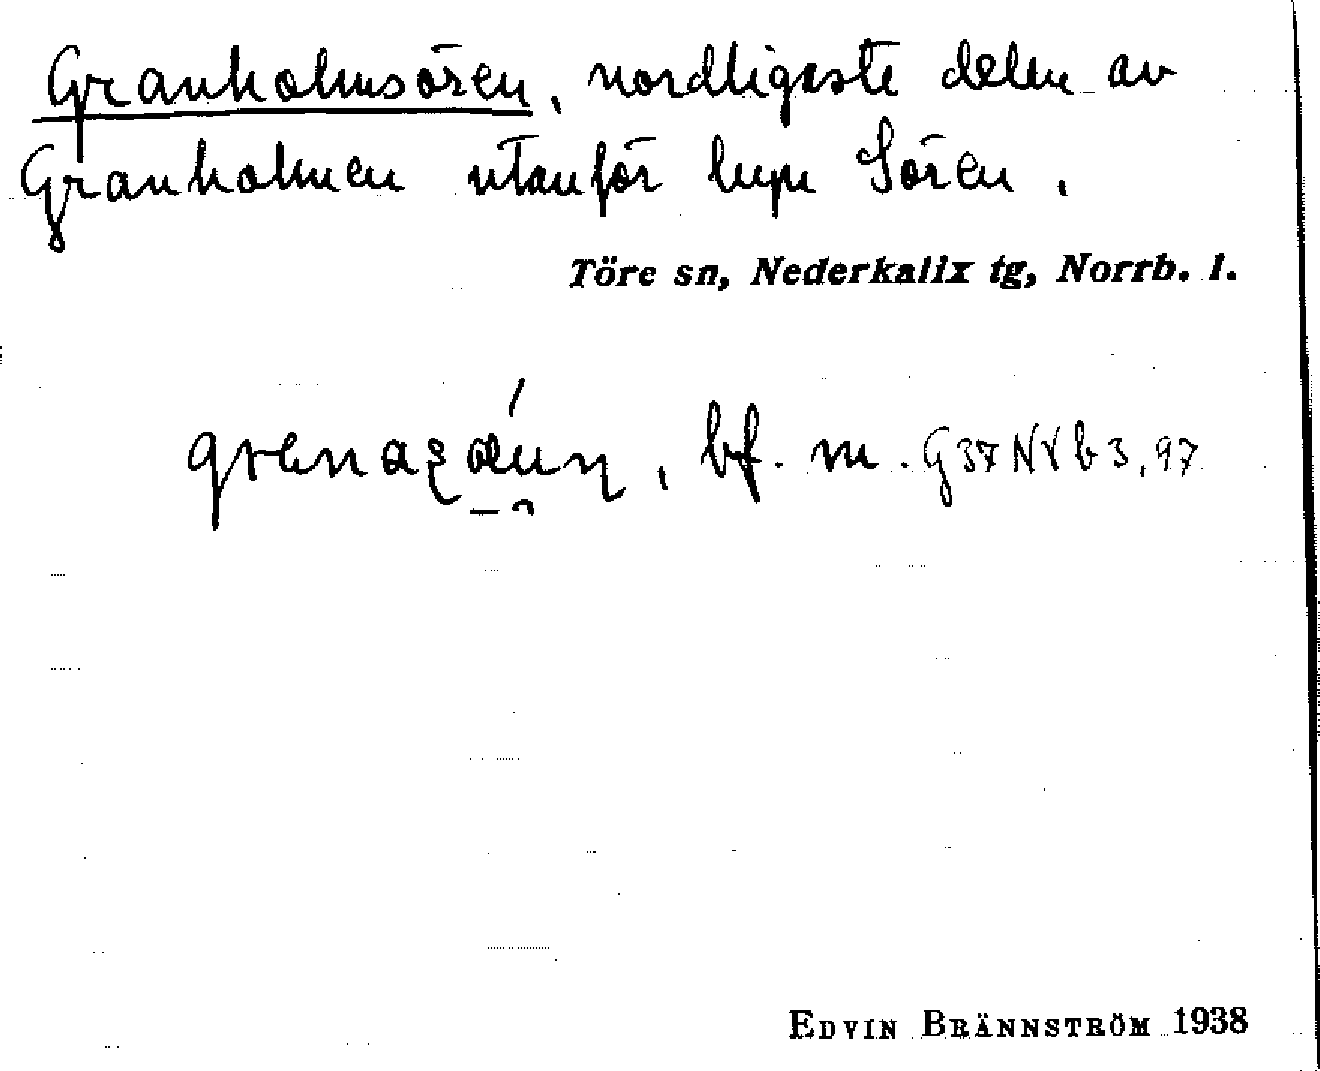 Granholmsören, nordligaste delen av
Granholmen utanför byn Sören.
Töre sn, Nederkalix tg, Norrb. l.
bf. m. G 37 NRb 3, 97
EDVIN BRÄNNSTRÖM 1938